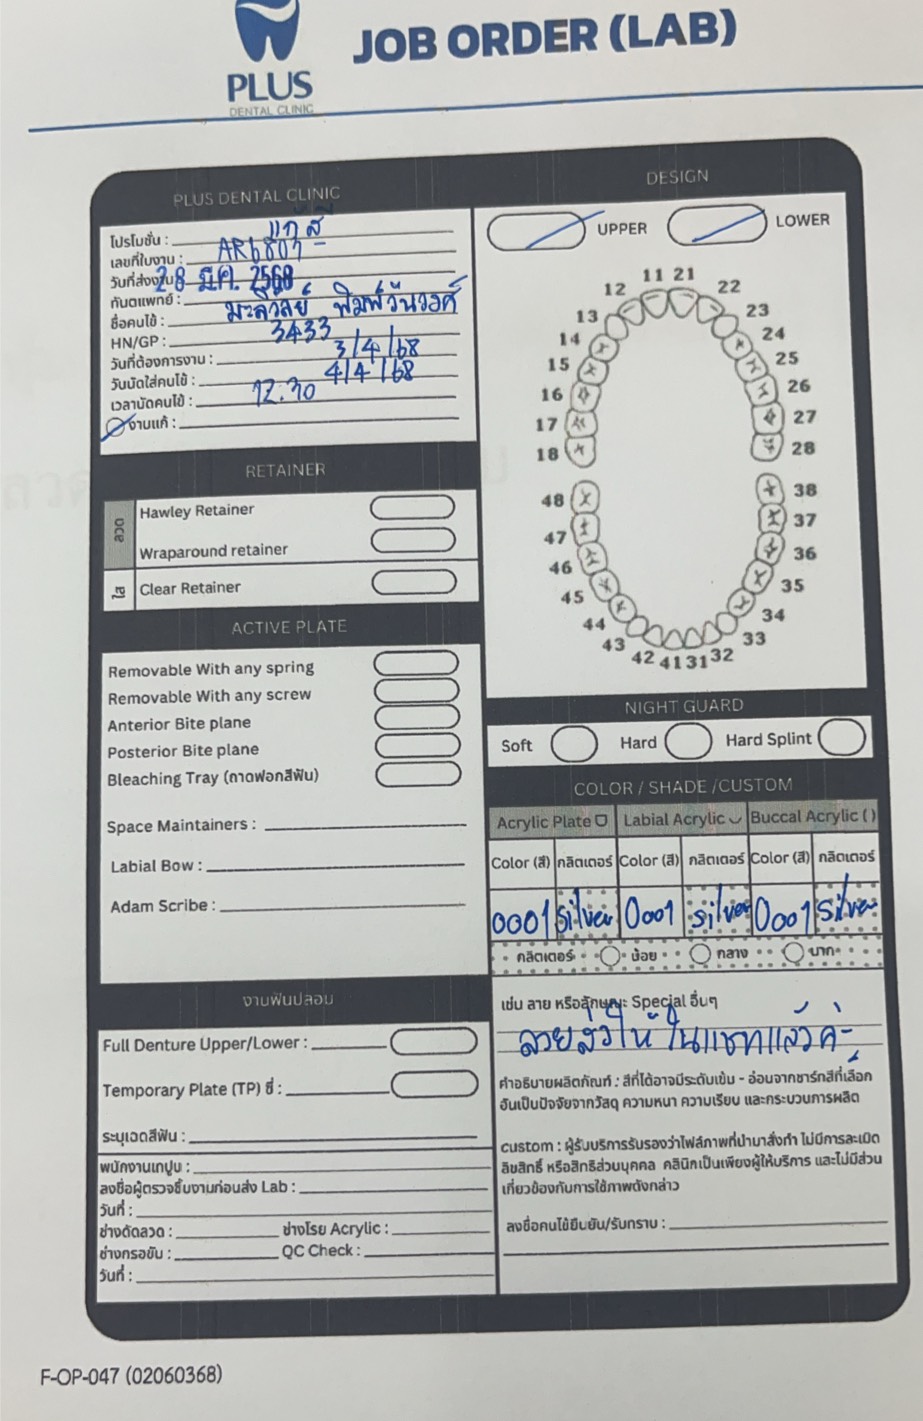 JOB ORDER (LAB)
PLUS
DENTAL CLINIC
PLUS DENTAL CLINIC
โปรโมชั่น :
เลขที่ใบงาน : AR6807
วันที่ส่งงาน : 28 มี.ค. 2568
ทันตแพทย์ :
ชื่อคนไข้ : มะลิวัลย์ พิมพ์วันวงศ์
HN/GP : 3433
วันที่ต้องการงาน : 3/4/68
วันนัดใส่คนไข้ : 4/4/68
เวลานัดคนไข้ : 12.30
งานแก้ :
RETAINER
ลวด
Hawley Retainer
Wraparound retainer
ใส
Clear Retainer
ACTIVE PLATE
Removable With any spring
Removable With any screw
Anterior Bite plane
Posterior Bite plane
Bleaching Tray (ถาดฟอกสีฟัน)
Space Maintainers :
Labial Bow :
Adam Scribe :
งานฟันปลอม
Full Denture Upper/Lower :
Temporary Plate (TP) ซี่ :
ระบุเฉดสีฟัน :
พนักงานเทปูน :
ลงชื่อผู้ตรวจชิ้นงานก่อนส่ง Lab :
วันที่ :
ช่างดัดลวด : ช่างโรย Acrylic :
ช่างกรอขัน : QC Check :
วันที่ :
DESIGN
UPPER LOWER
11 21
12 22
13 23
14 24
15 25
16 26
17 27
18 28
48 38
47 37
46 36
45 35
44 34
43 33
42 41 31 32
NIGHT GUARD
Soft Hard Hard Splint
COLOR / SHADE /CUSTOM
Acrylic Plate Labial Acrylic Buccal Acrylic ( )
Color (สี) กลิตเตอร์ Color (สี) กลิตเตอร์ Color (สี) กลิตเตอร์
0001 Silver 0001 Silver 0001 Silver
กลิตเตอร์ น้อย กลาง มาก
เช่น ลาย หรือลักษณะ Special อื่นๆ
ลายส่งให้ในแชทแล้วค่ะ
คำอธิบายผลิตภัณฑ์ : สีที่ได้อาจมีระดับเข้ม - อ่อนจากชาร์ทสีที่เลือก
อันเป็นปัจจัยจากวัสดุ ความหนา ความเรียบ และกระบวนการผลิต
custom : ผู้รับบริการรับรองว่าไฟล์ภาพที่นำมาสั่งทำ ไม่มีการละเมิด
ลิขสิทธิ์ หรือสิทธิส่วนบุคคล คลินิกเป็นเพียงผู้ให้บริการ และไม่มีส่วน
เกี่ยวข้องกับการใช้ภาพดังกล่าว
ลงชื่อคนไข้ยืนยัน/รับทราบ :
F-OP-047 (02060368)